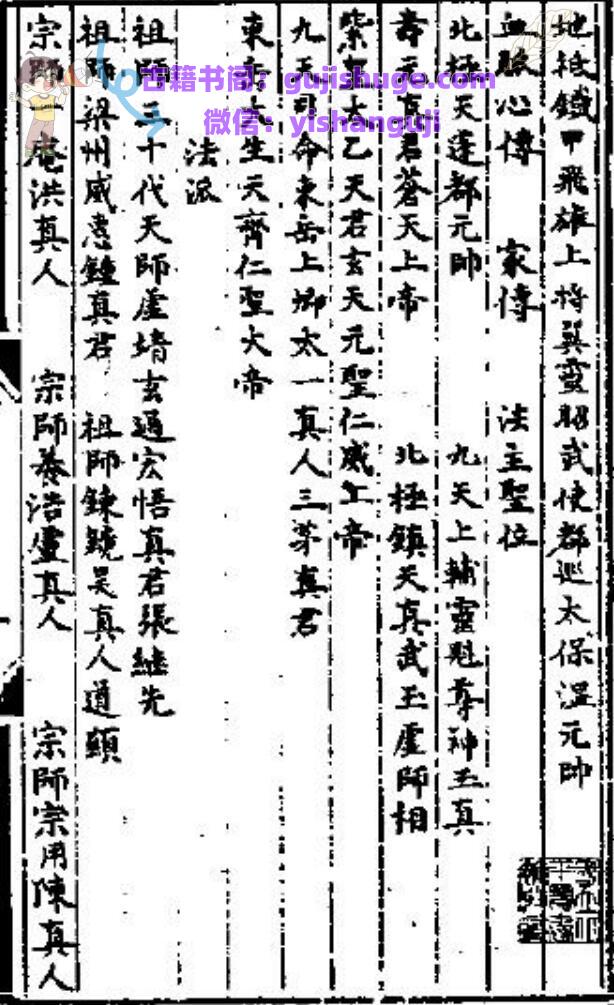 地祇鐵甲飛雄上將翼靈昭武使都巡太保溫元帥
血脈心傳 家傳 法主聖位
北極天蓬都元帥 九天上輔靈尊神玉真
壽元真君蒼天上帝 北極鎮天真武玉虛師相
紫皇太乙天君玄天元聖仁威上帝
九天司命東岳上卿太一真人三茅真君
東岳大生天齊仁聖大帝
法派
祖師三十代天師虛靖玄通宏悟真君張繼先
祖師梁州威惠鍾真君 祖師鍊鏡吳真人道顯
宗師 洪真人 宗師養浩盧真人 宗師宗用陳真人
古籍书阁：gujishuge.com
微信：yishanguji